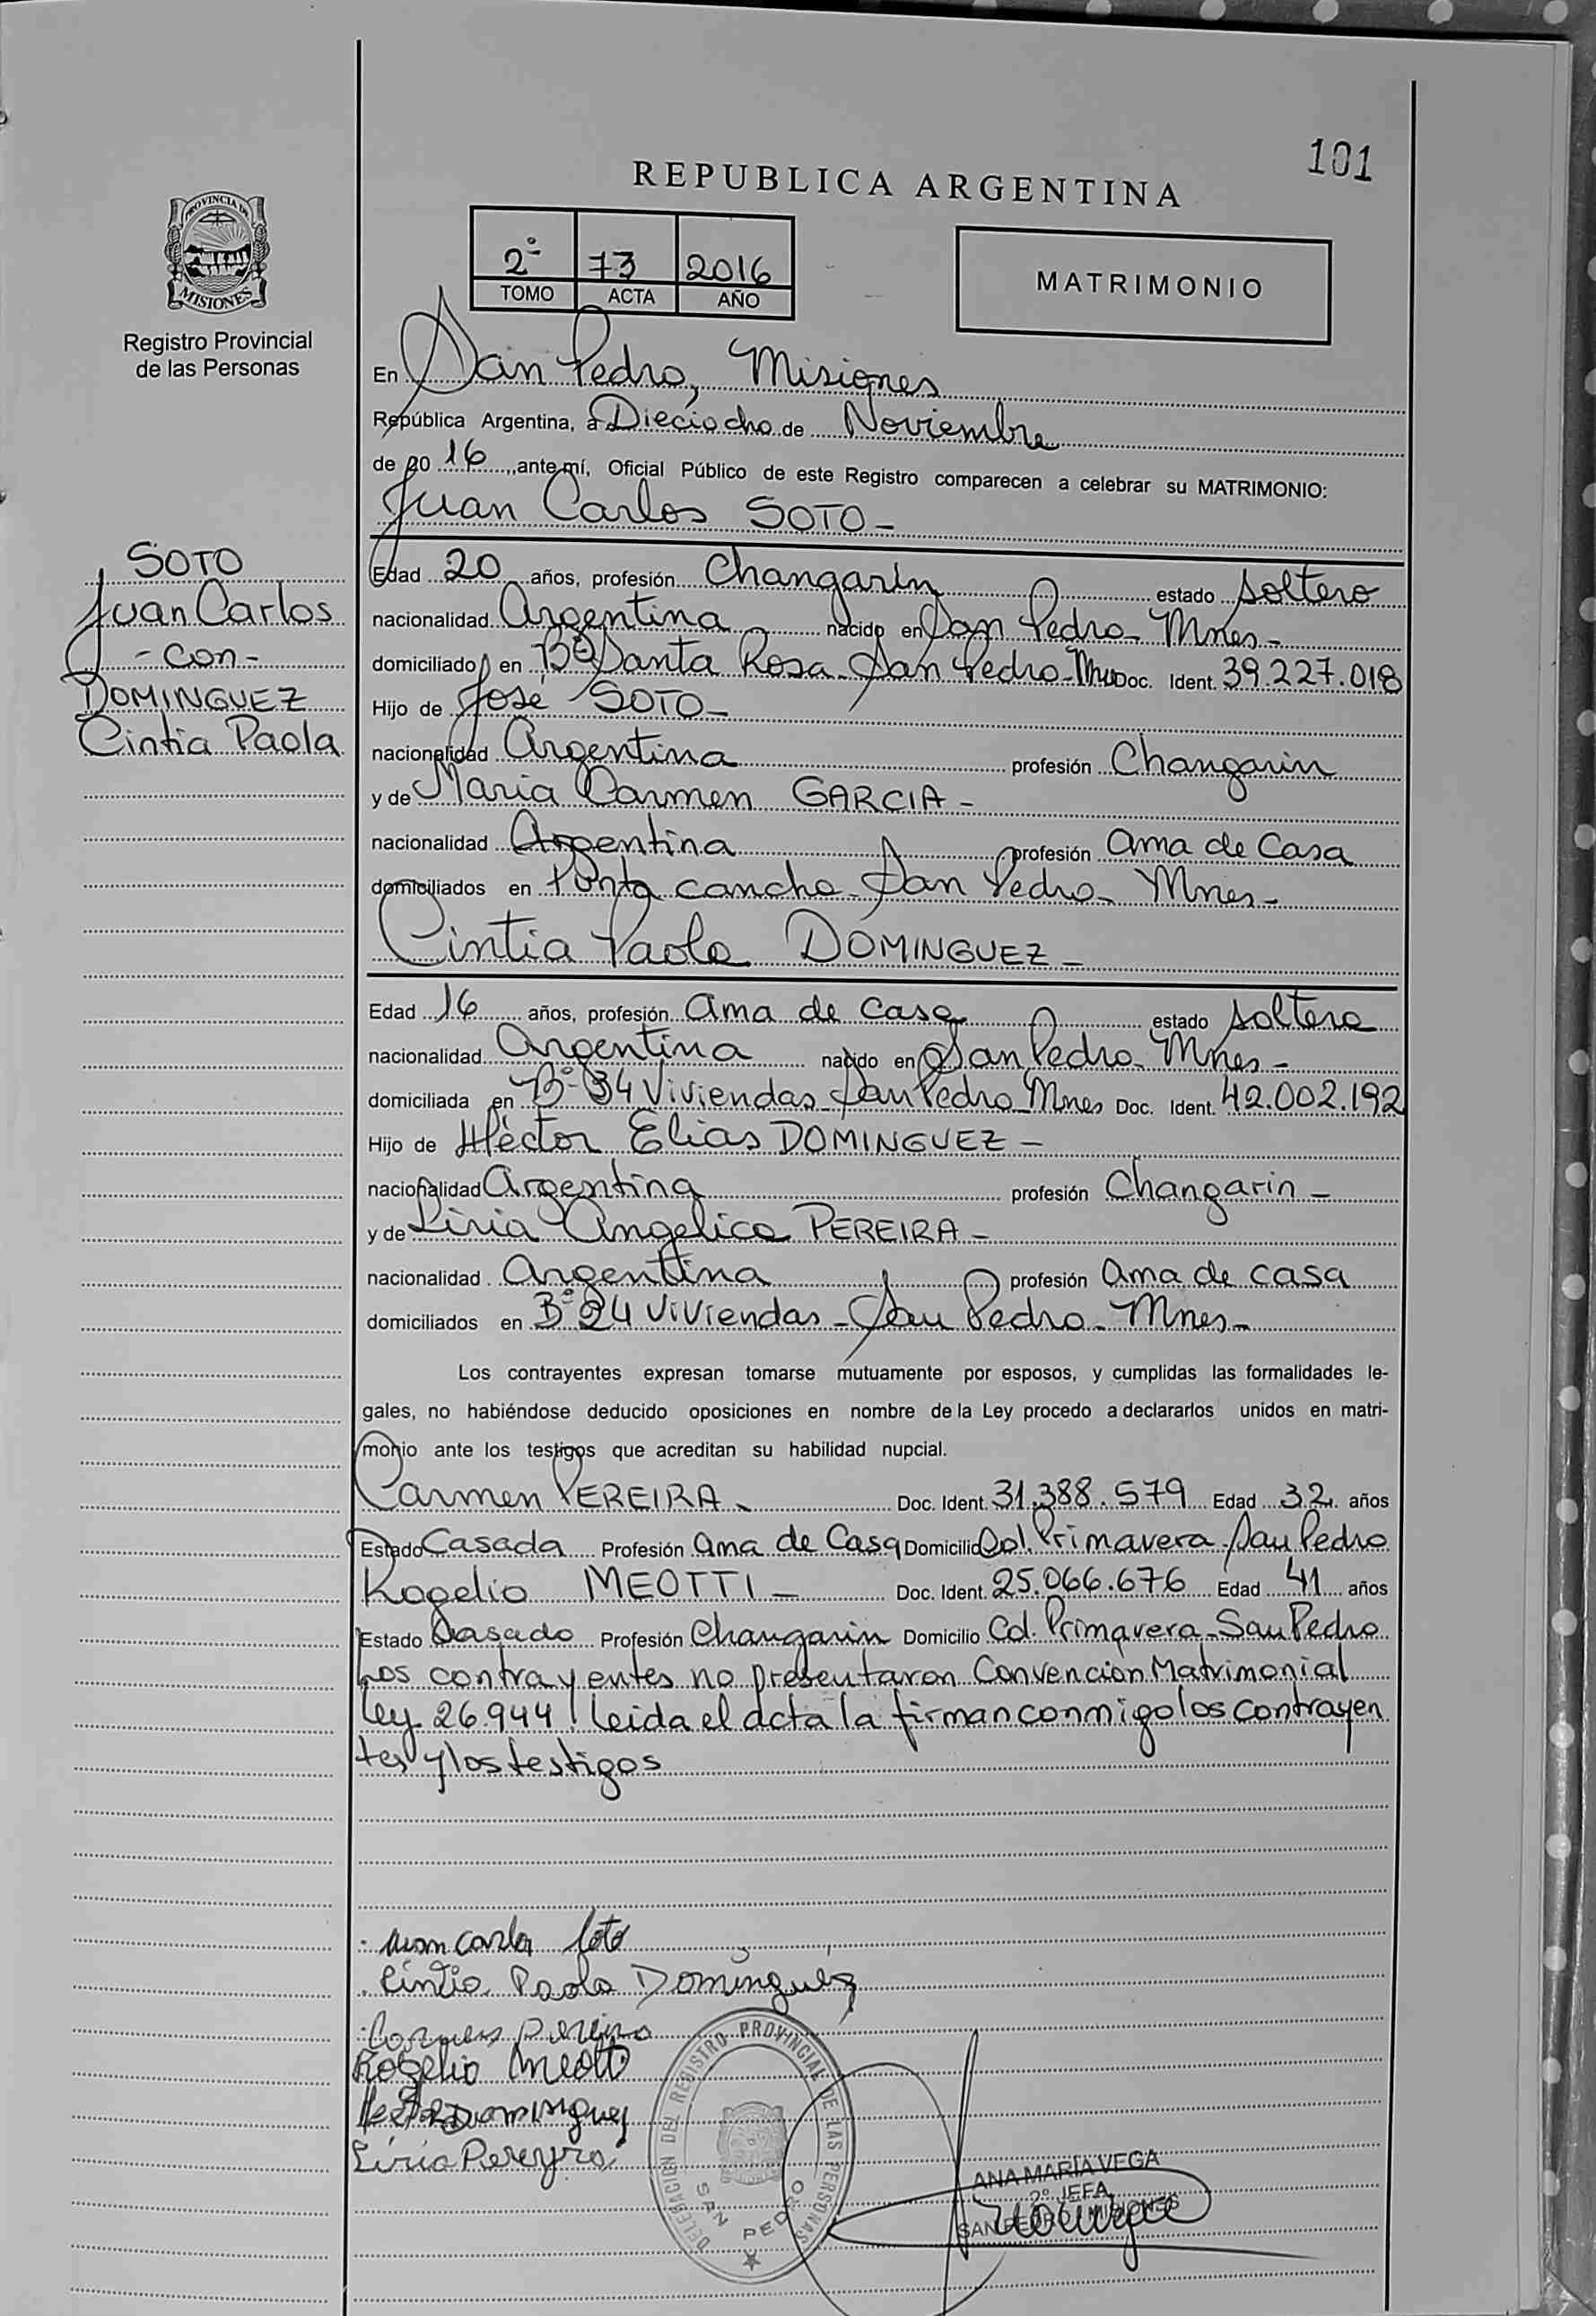 101
REPUBLICA ARGENTINA
PROVINCIA DE
MISIONES
Registro Provincial
de las Personas
2º 73 2016
TOMO ACTA AÑO
MATRIMONIO
En San Pedro, Misiones
República Argentina, a Dieciocho de Noviembre
de 20 16, ante mí, Oficial Público de este Registro comparecen a celebrar su MATRIMONIO:
Juan Carlos SOTO -
SOTO
Juan Carlos
- con -
DOMINGUEZ
Cintia Paola
Edad 20 años, profesión Changarin estado soltero
nacionalidad Argentina nacido en San Pedro - Mnes -
domiciliado en Bº Santa Rosa - San Pedro - Mnes Doc. Ident. 39.227.018
Hijo de José SOTO -
nacionalidad Argentina profesión Changarin
y de Maria Carmen GARCIA -
nacionalidad Argentina profesión ama de Casa
domiciliados en Punta cancha - San Pedro - Mnes -
Cintia Paola DOMINGUEZ -
Edad 16 años, profesión ama de casa estado soltera
nacionalidad Argentina nacido en San Pedro - Mnes -
domiciliada en Bº 34 Viviendas - San Pedro - Mnes Doc. Ident. 42.002.192
Hijo de Héctor Elias DOMINGUEZ -
nacionalidad Argentina profesión Changarin -
y de Liria Angelica PEREIRA -
nacionalidad Argentina profesión ama de casa
domiciliados en Bº Viviendas - San Pedro - Mnes -
Los contrayentes expresan tomarse mutuamente por esposos, y cumplidas las formalidades le-
gales, no habiéndose deducido oposiciones en nombre de la Ley procedo a declararlos unidos en matri-
monio ante los testigos que acreditan su habilidad nupcial.
Carmen PEREIRA - Doc. Ident. 31.388.579 Edad 32 años
Estado Casada Profesión ama de Casa Domicilio Col. Primavera - San Pedro
Rogelio MEOTTI - Doc. Ident. 25.066.676 Edad 41 años
Estado Casado Profesión Changarin Domicilio Col. Primavera - San Pedro
Los contrayentes no presentaron Convención Matrimonial
Ley 26.944! Leida el acta la firman conmigo los contrayen
tes y los testigos
Juan Carlos Soto
Cintia Paola Dominguez
Carmen Pereira
Rogelio Meotti
Dominguez
Liria Pereyra
DELEGACION DEL REGISTRO PROVINCIAL DE LAS PERSONAS
SAN PEDRO
ANA MARIA VEGA
2º JEFA
SAN PEDRO MISIONES